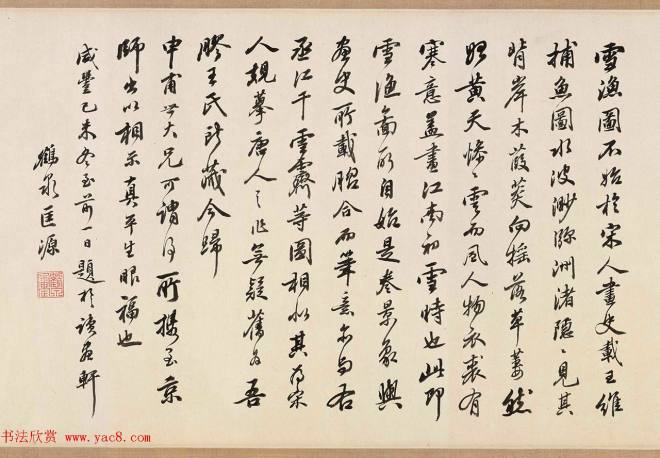 雪漁圖不始於宋人畫史載王維
捕魚圖水波渺瀰洲渚隱〻見其
背岸木葭菼向搖落草萎然
黃天慘〻雲而風人物衣裘有
寒意蓋畫江南初雪時也此即
雪漁圖所自始是卷景象與
畫史所載脗合而筆意亦與右
丞江干雪霽等圖相似其為宋
人規摹唐人之作無疑舊為吾
膠王氏所藏今歸
申甫世大兄可謂得所攜至京
師出以相示真平生眼福也
咸豐己未冬至前一日題於讀畫軒
鶴泉匡源
书法欣赏
www.yac8.com